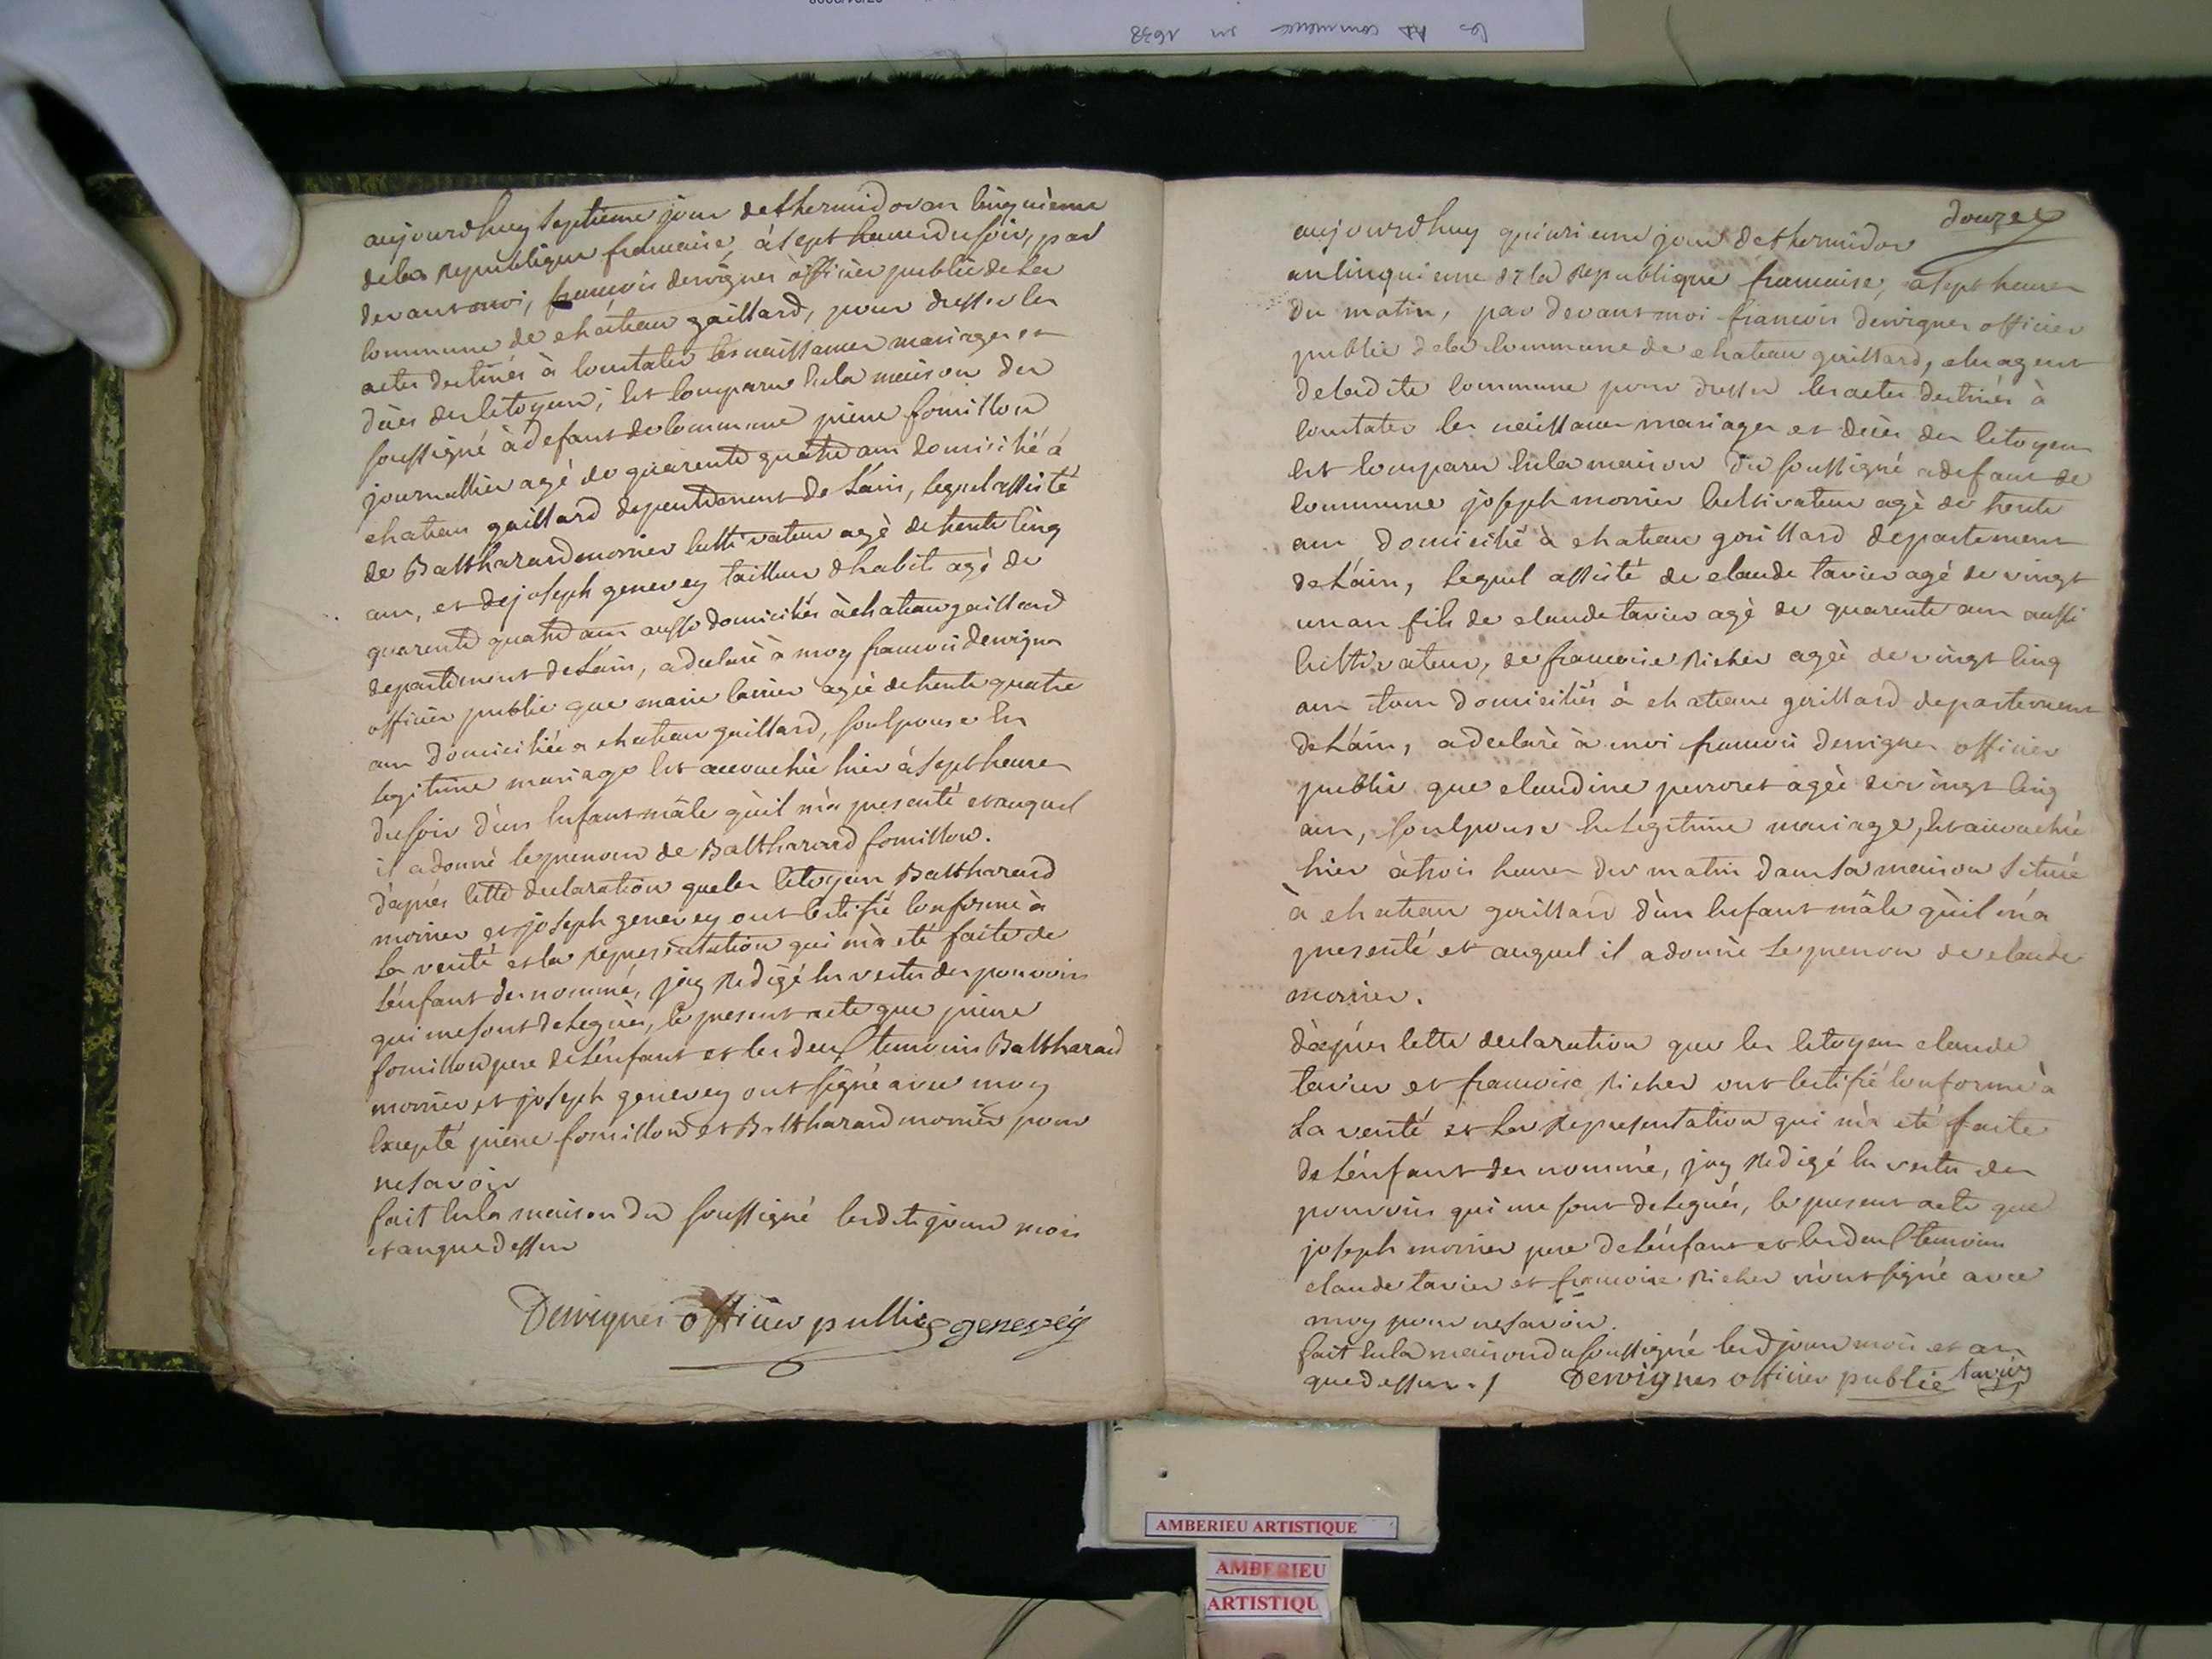 les AD commence en 1638
aujourdhuy septieme jour dethermidor an cinquieme
dela Republique francaise, à sept heures du soir, par
devant moi, francois dervignes officier public de la
commune de chateau gaillard, pour dresser les
actes destinés à constater les naissances mariages et
dúes des citoyens; est comparu en la maison du
soussigné à defaut de commune pierre fornillon
journallier agé de quarente quatre ans domicilié á
chateau gaillard departement de Láin, lequel assisté
de Balthazard morrier cultivateur agè de trente cinq
ans, et de joseph genevey tailleur dhabits agé de
quarente quatre ans aussi domiciliés à chateau gaillard
departement de Láin, a declaré à moy francois dervignes
officier public que marie
ans domiciliée a chateau gaillard, son epouse en
legitime mariage est accouchée hier à sept heures
du soir d'un enfant mâle qu'il m'a presenté et auquel
il a donné le prenom de Balthazard fornillon.
d'apres cette declaration que les citoyens Balthazard
morrier et joseph genevey ont certifié conforme à
La verité et la Representation qui m'a eté faite de
l'enfant denommé, j'ay Redigé en vertu des pouvoirs
qui me sont delegués, le present acte que pierre
fornillon pere de L'enfant et les deux temoins Balthazard
morrier et joseph genevey ont signé avec moy
Excepté pierre fornillon et Balthazard morrier pour
ne savoir
fait en la maison du soussigné les dits jour mois
et an que dessus
Dervignes officier public genevey
douze
aujourdhuy quinzieme jour dethermidor
an cinquieme de la Republique francaise, a sept heures
du matin, par devant moi francois dervignes officier
public dela commune de chateau gaillard, elu agent
deladite commune pour dresser les actes destinés à
constater les naissances mariages et décès des citoyens
est comparu en la maison du soussigné a defaut de
commune joseph morrier cultivateur agè de trente
ans domicilié à chateau gaillard departement
deLáin, Lequel assisté de claude tavier agé de vingt
un an fils de claude tavier agè de quarente ans aussi
cultivateur, de francoise Richer ageè de vingt cinq
ans tous domiciliés à chateau gaillard departement
deLáin, a declaré à moi francois dervignes officier
public que claudine perroret agèe de vingt cinq
ans, son epouse en Legitime mariage, est accouchée
hier à trois heures du matin dans sa maison située
à chateau gaillard d'un enfant mâle qu'il m'a
presenté et auquel il a donné Le prenom de claude
morrier.
d'après cette declaration que les citoyens claude
tavier et francoise Richer ont certifié conforme à
La verité et La Representation qui m'a eté faite
de L'enfant denommé, j'ay Redigé en vertu des
pouvoirs qui me sont delegués, le present acte que
joseph morrier pere deL'enfant et les deux temoins
claude tavier et francoise Richer n'ont signé avec
moy pour ne savoir.
fait en la maison du soussigné lesd jour mois et an
que dessus./ Dervignes officier public tavier
AMBERIEU ARTISTIQUE
AMBERIEU
ARTISTIQU